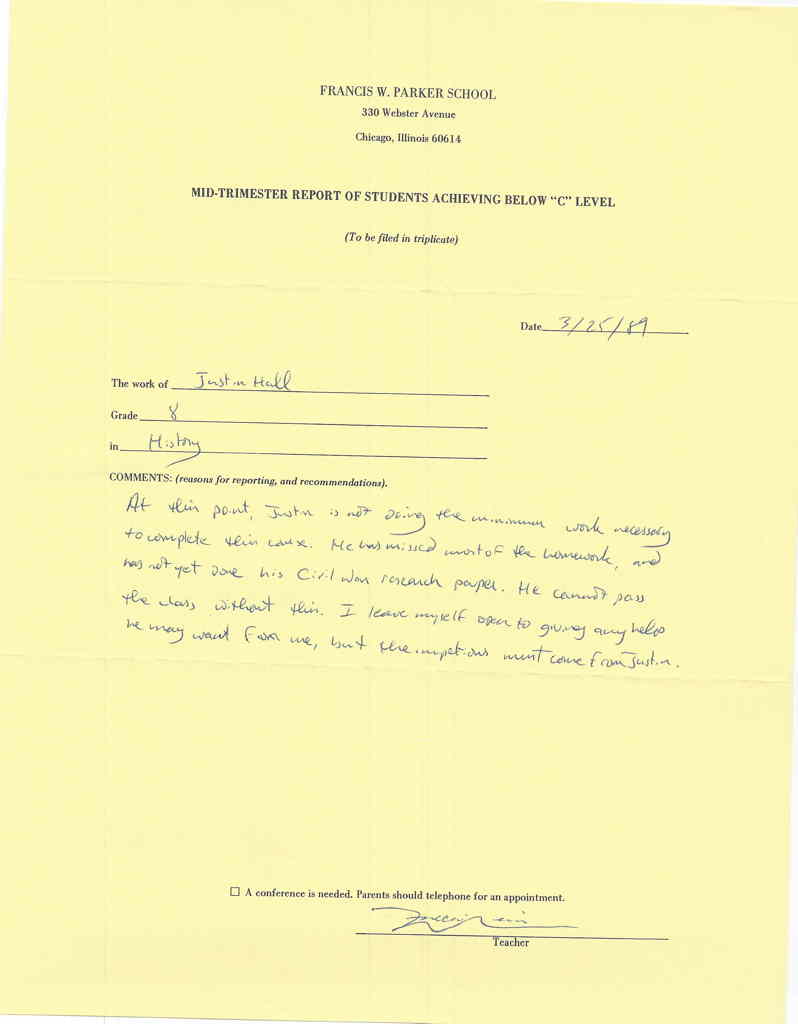 FRANCIS W. PARKER SCHOOL
330 Webster Avenue
Chicago, Illinois 60614
MID-TRIMESTER REPORT OF STUDENTS ACHIEVING BELOW "C" LEVEL
(To be filed in triplicate)
Date 3/25/89
The work of Justin Hall
Grade 8
in History
COMMENTS: (reasons for reporting, and recommendations).
At this point, Justin is not doing the minimum work necessary
to complete this course. He has missed most of the homework, and
has not yet done his Civil War research paper. He cannot pass
the class without this. I leave myself open to giving any help
he may want from me, but the must come from Justin.
☐ A conference is needed. Parents should telephone for an appointment.
Teacher